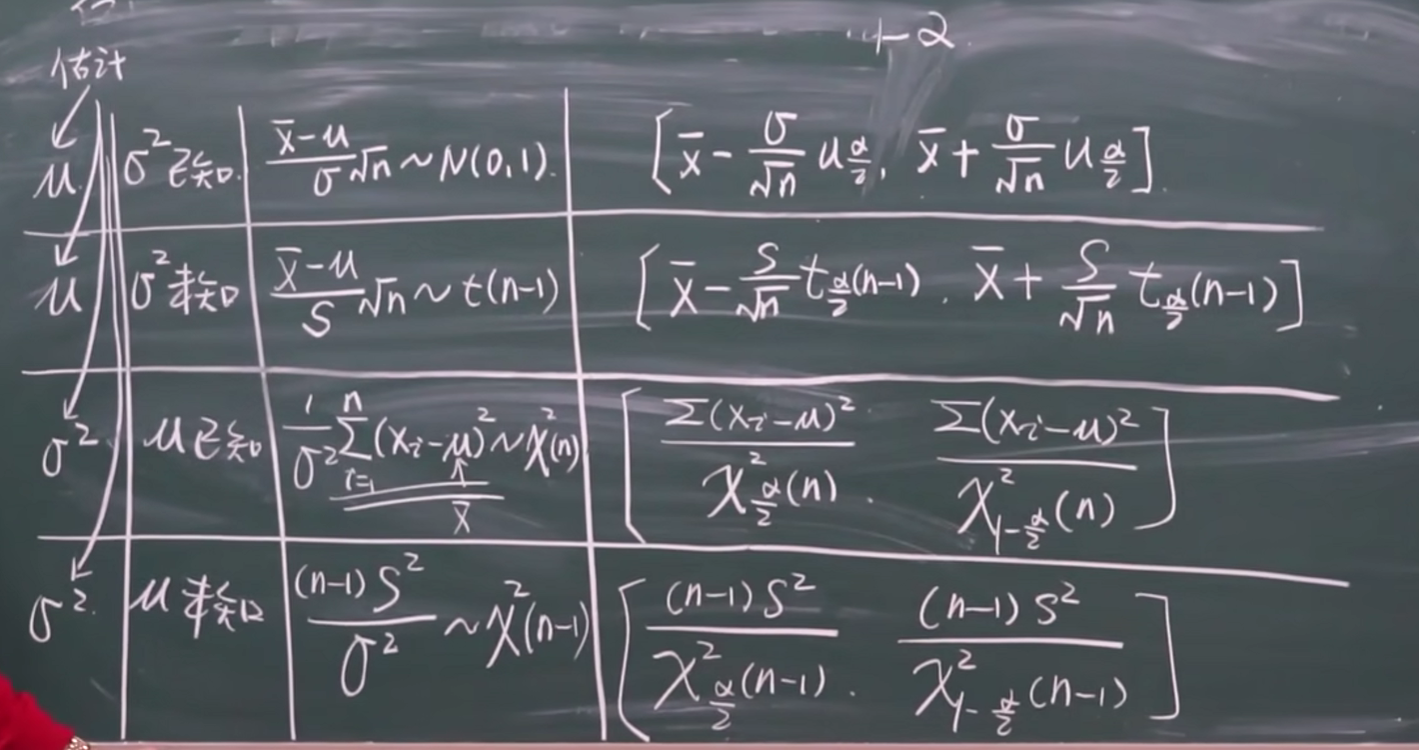 1-α
估计
μ σ²已知 (x̄-μ)/σ √n ~ N(0,1). [x̄ - σ/√n u_{α/2}, x̄ + σ/√n u_{α/2}]
μ σ²未知 (x̄-μ)/S √n ~ t(n-1) [x̄ - S/√n t_{α/2}(n-1), x̄ + S/√n t_{α/2}(n-1)]
σ² μ已知 1/σ² Σ_{i=1}^{n} (x_i-μ)² ~ χ²(n) [Σ(x_i-μ)²/χ²_{α/2}(n), Σ(x_i-μ)²/χ²_{1-α/2}(n)]
x̄
σ² μ未知 (n-1)S²/σ² ~ χ²(n-1) [(n-1)S²/χ²_{α/2}(n-1), (n-1)S²/χ²_{1-α/2}(n-1)]